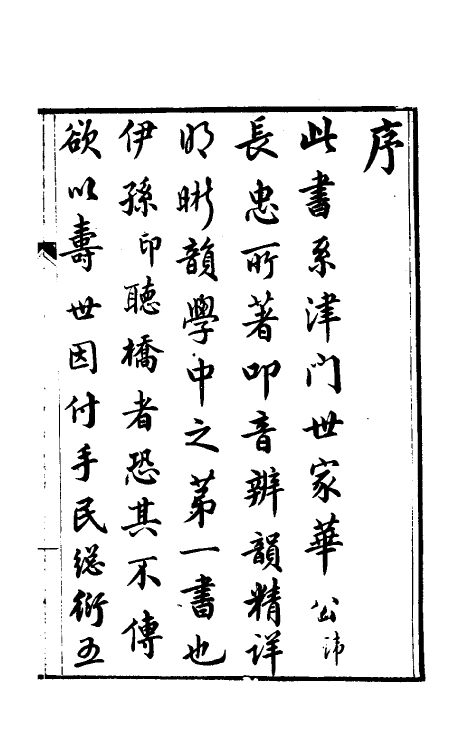 序
此書系津门世家華公諱
長忠所著叩音辨韻精詳
明晰韻學中之第一書也
伊孫印聽橋者恐其不傳
欲以壽世因付手民総衍五